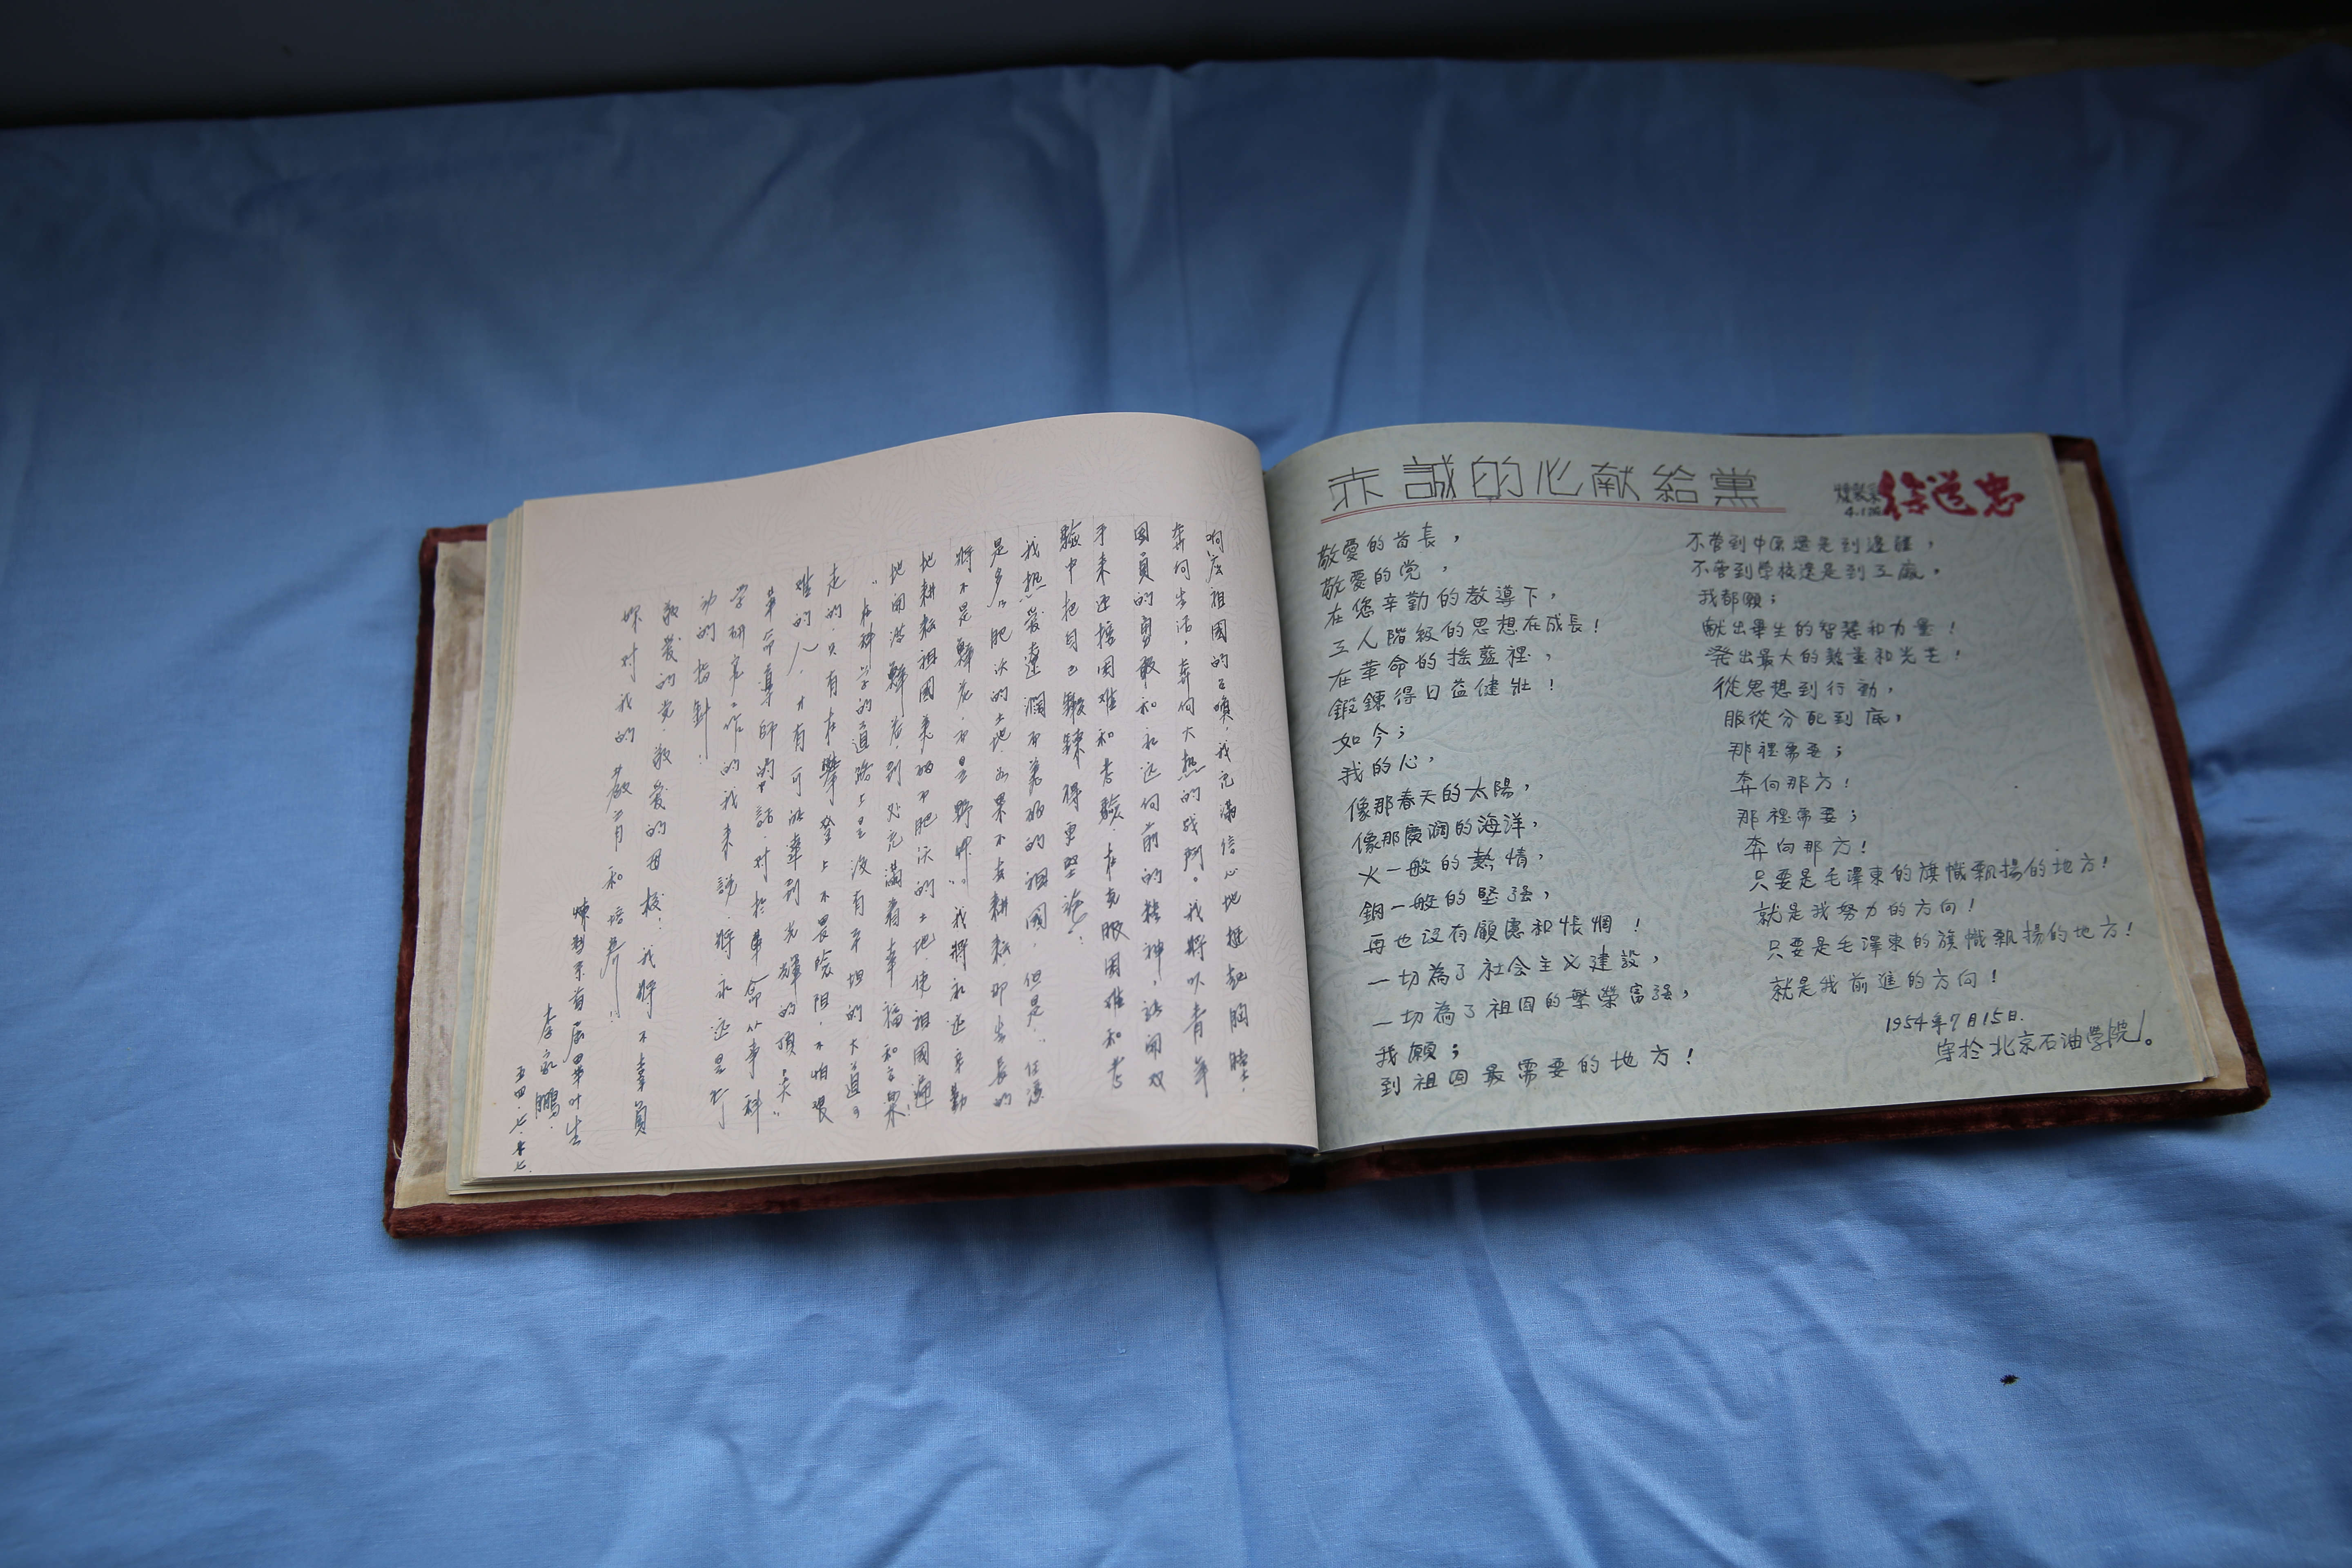 响应祖國的召喚，我充滿信心地挺起胸膛，
奔向生活，奔向火热的战鬥。我將以青年
團員的勇敢和永远向前的精神，張開双
手来迎接困难和考驗，在克服困难和考
驗中把自己鍛鍊得更堅强！
我热爱遼濶而美丽的祖國，但是，任憑
是多么肥沃的土地，如果不去耕耘，那生長的
將不是鮮花，而是野草。我將永远辛勤
地耕耘祖國美丽而肥沃的土地，使祖國遍
地開滿鮮花，到处充滿着幸福和歡樂！
“在科学的道路上是没有平坦的大道可
走的，只有在攀登上不畏險阻，不怕艰
难的人，才有可能達到光輝的頂点”
革命導師的話，对於畢命从事科
学研究工作的我来說，將永远是行
动的指針！
敬爱的党，敬爱的母校！我將不辜負
你对我的教育和培养！
煉製系首屆畢業生
李家鵬
五四.七.十七.
赤誠的心献給黨
煉製系
4.1班
徐道忠
敬愛的首長，
敬愛的党，
在您辛勤的教導下，
工人階級的思想在成長！
在革命的搖藍裡，
鍛鍊得日益健壯！
如今；
我的心，
像那春天的太陽，
像那廣濶的海洋，
火一般的熱情，
鋼一般的堅强，
再也没有顧慮和悵惘！
一切為了社会主义建設，
一切為了祖囯的繁榮富强，
我願；
到祖囯最需要的地方！
不管到中原還是到邊疆，
不管到學校還是到工廠。
我都願；
献出畢生的智慧和力量！
発出最大的熱量和光芒！
從思想到行動，
服從分配到底，
那裡需要；
奔向那方！
那裡需要；
奔向那方！
只要是毛澤東的旗幟飘揚的地方！
就是我努力的方向！
只要是毛澤東的旗幟飘揚的地方！
就是我前進的方向！
1954年7月15日.
写於北京石油學院。